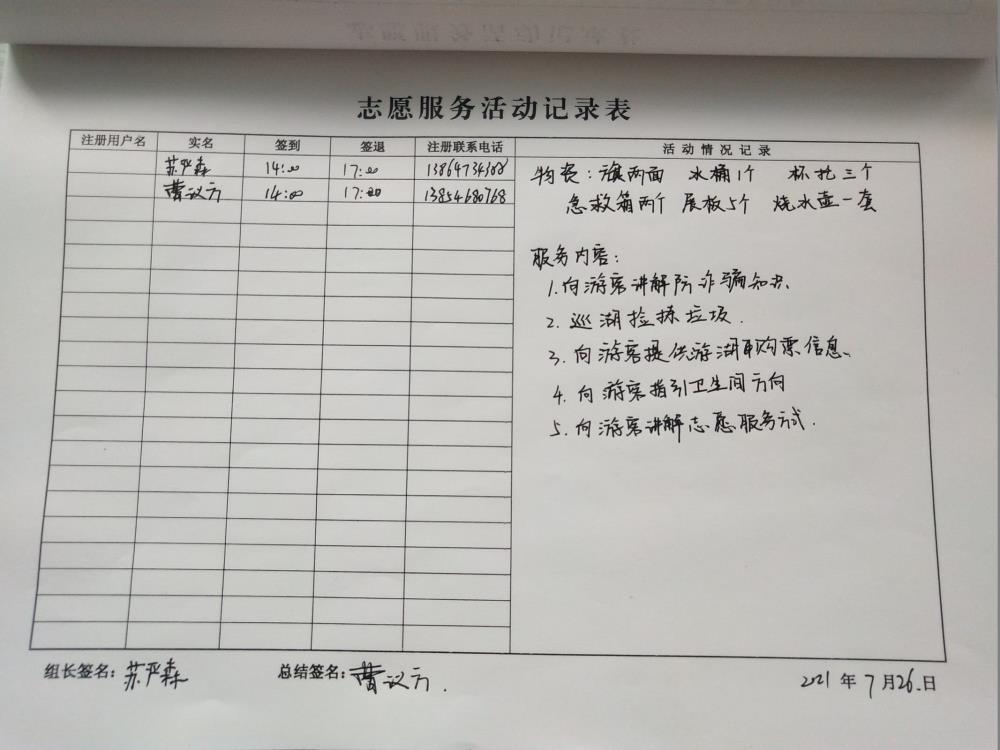 志愿服务活动记录表
注册用户名 实名 签到 签退 注册联系电话 活动情况记录
苏严森 14:00 17:00
曹议方 14:00 17:00 13854680768
物资：旗两面 水桶1个 杯托三个
急救箱两个 展板5个 烧水壶一套
服务内容：
1.向游客讲解防诈骗知识.
2.巡湖捡拣垃圾.
3.向游客提供游湖购票信息.
4.向游客指引卫生间方向
5.向游客讲解志愿服务方式.
组长签名：苏严森 总结签名：曹议方.
2021年7月26.日